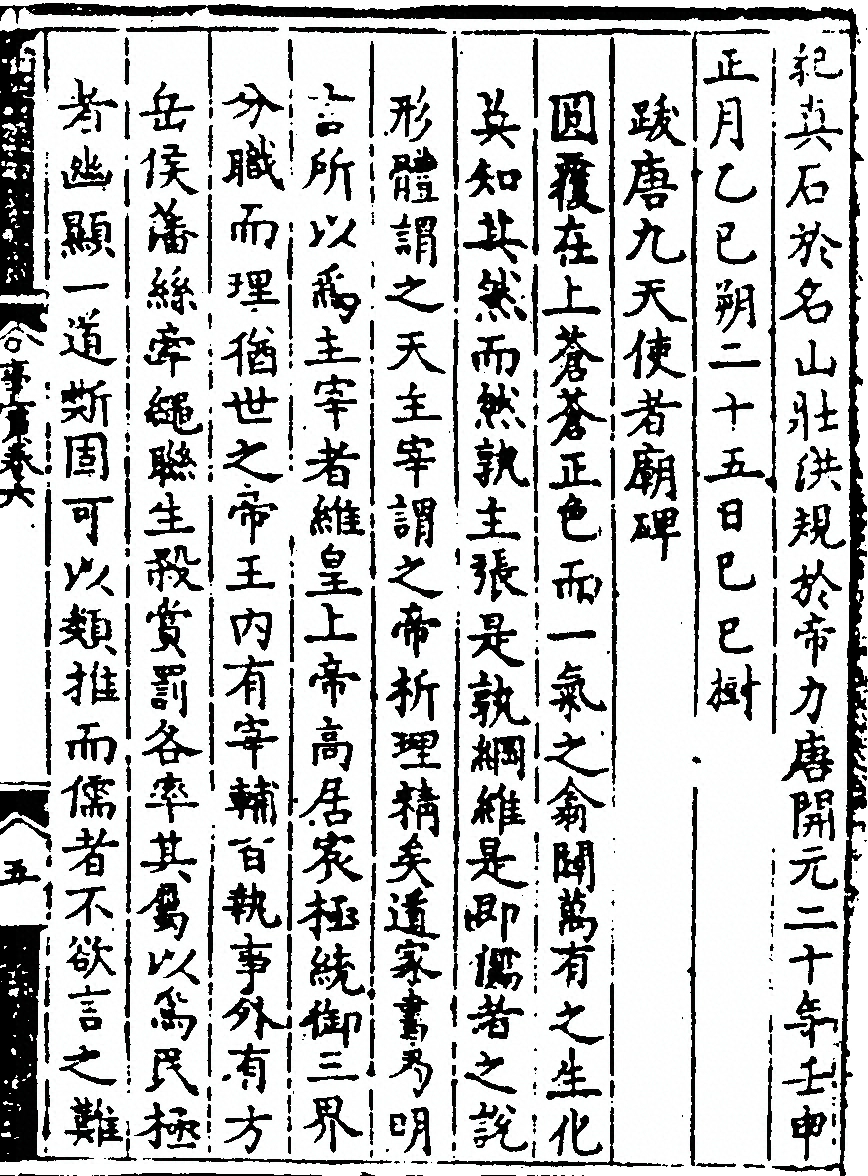 紀真石於名山壯洪規於帝力唐開元二十年壬申
正月乙巳朔二十五日巳巳樹
跋唐九天使者廟碑
圓覆在上蒼蒼正色而一氣之翕闢萬有之生化
莫知其然而然孰主張是孰綱維是即儒者之說
形體謂之天主宰謂之帝析理精矣道家書為明
言所以為主宰者維皇上帝高居宸極統御三界
分職而理猶世之帝王内有宰輔百執事外有方
岳侯藩絲牽繩聯生殺賞罰各率其屬以為民極
者幽顯一道斯固可以類推而儒者不欲言之難
事實卷六
五